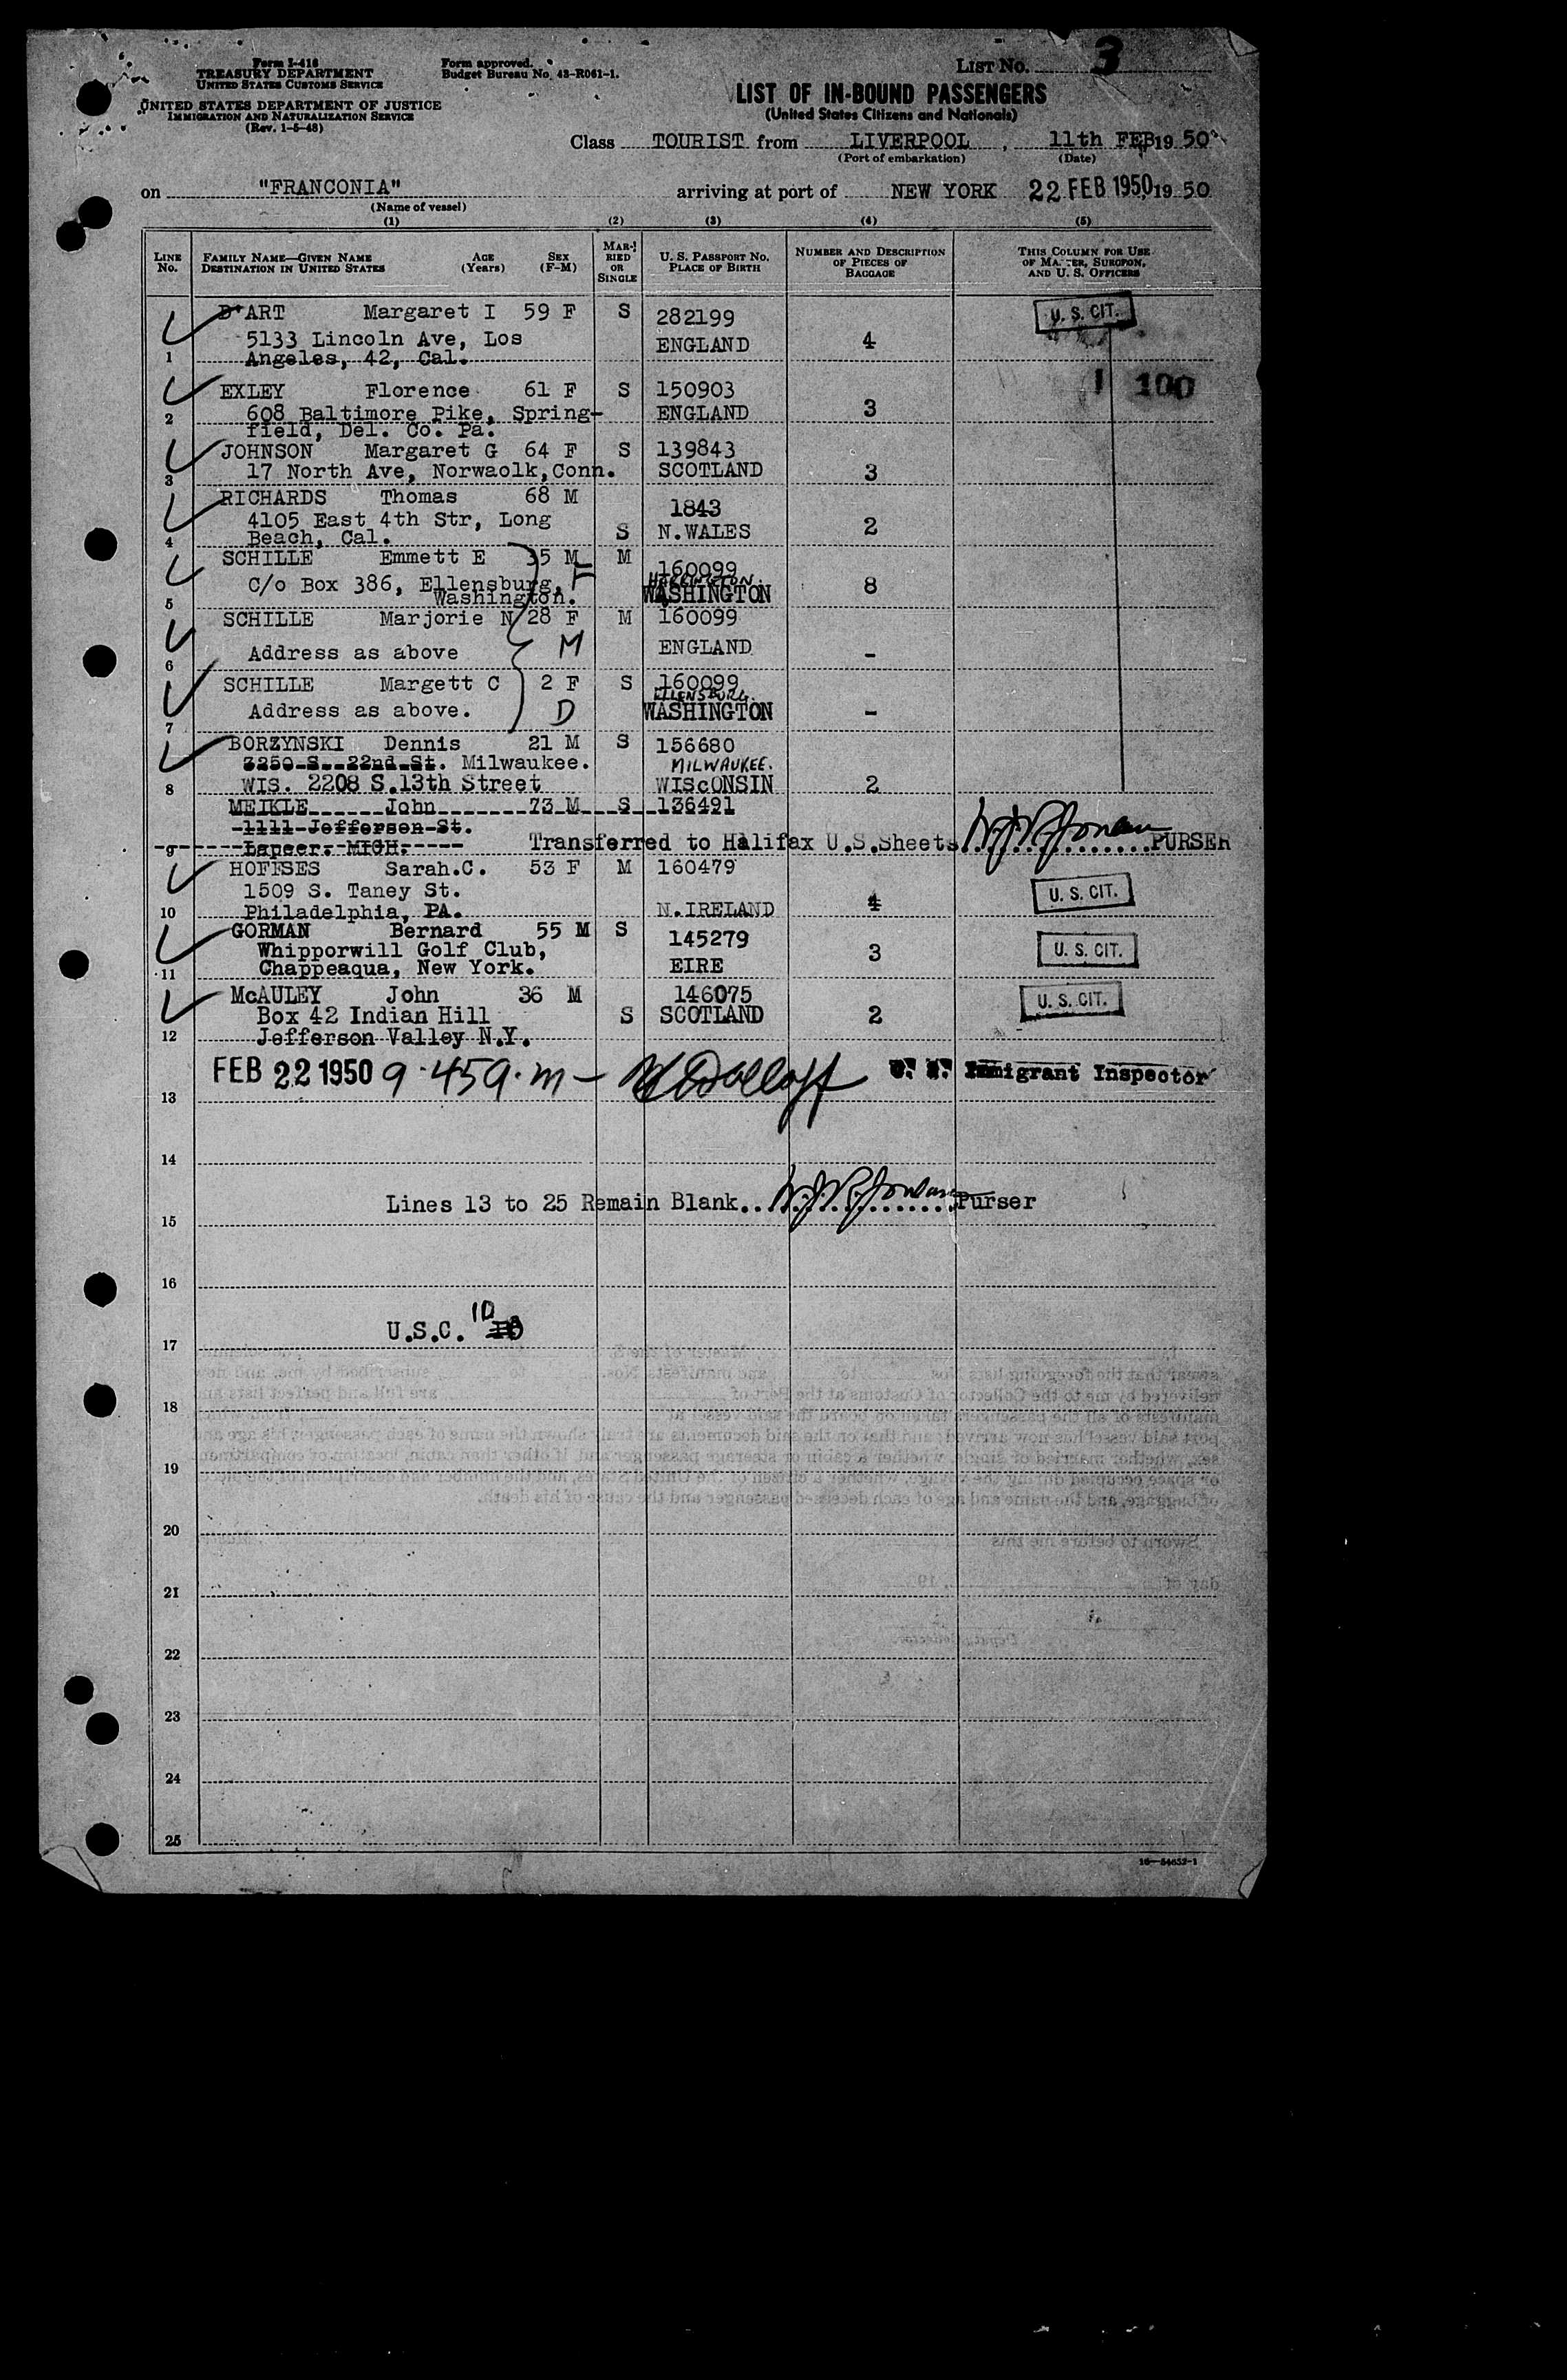 Form I-418
TREASURY DEPARTMENT
UNITED STATES CUSTOMS SERVICE
UNITED STATES DEPARTMENT OF JUSTICE
IMMIGRATION AND NATURALIZATION SERVICE
(Rev. 1-5-48)
Form approved.
Budget Bureau No. 43-R061-1.
LIST No. 3
LIST OF IN-BOUND PASSENGERS
(United States Citizens and Nationals)
Class TOURIST from LIVERPOOL, 11th FEB 19 50
(Port of embarkation) (Date)
on "FRANCONIA" arriving at port of NEW YORK 22 FEB 1950, 19 50
(Name of vessel)
(1) (2) (3) (4) (5)
LINE No. FAMILY NAME—GIVEN NAME DESTINATION IN UNITED STATES AGE (Years) SEX (F-M) MARRIED OR SINGLE U. S. PASSPORT No. PLACE OF BIRTH NUMBER AND DESCRIPTION OF PIECES OF BAGGAGE THIS COLUMN FOR USE OF MASTER, SURGEON, AND U. S. OFFICERS
D'ART Margaret I 59 F S 282199 U. S. CIT.
5133 Lincoln Ave, Los ENGLAND 4
1 Angeles, 42, Cal.
EXLEY Florence 61 F S 150903 1 100
2 608 Baltimore Pike, Spring- ENGLAND 3
field, Del. Co. Pa.
JOHNSON Margaret G 64 F S 139843
3 17 North Ave, Norwaolk, Conn. SCOTLAND 3
RICHARDS Thomas 68 M 1843
4105 East 4th Str, Long S N.WALES 2
4 Beach, Cal.
SCHILLE Emmett E 35 M M 160099
C/o Box 386, Ellensburg, F HARRINGTON. 8
5 Washington. WASHINGTON
SCHILLE Marjorie N 28 F M 160099
6 Address as above M ENGLAND -
SCHILLE Margett C 2 F S 160099
ELLENSBURG.
7 Address as above. D WASHINGTON -
BORZYNSKI Dennis 21 M S 156680
3250 S. 22nd St. Milwaukee. MILWAUKEE.
8 WIS. 2208 S.13th Street WISCONSIN 2
MEIKLE John 73 M S 136491
1111 Jefferson St.
9 Lapeer. MICH. Transferred to Halifax U.S.Sheets PURSER
HOFFSES Sarah.C. 53 F M 160479
1509 S. Taney St. U. S. CIT.
10 Philadelphia, PA. N.IRELAND 4
GORMAN Bernard 55 M S 145279
Whipporwill Golf Club, 3 U. S. CIT.
11 Chappeaqua, New York. EIRE
McAULEY John 36 M 146075 U. S. CIT.
Box 42 Indian Hill S SCOTLAND 2
12 Jefferson Valley N.Y.
FEB 22 1950 9.45 a.m - U. S. Immigrant Inspector
13
14
Lines 13 to 25 Remain Blank. Purser
15
16
10
U.S.C.
17
18
19
20
21
22
23
24
25